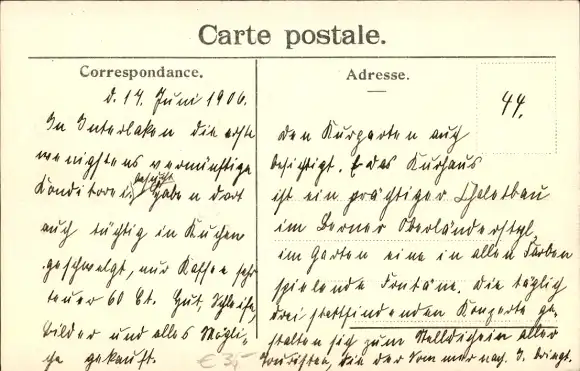 Carte postale.
Correspondance.
d. 14. Juni 1906.
In Interlaken die erste
wenigstens vernünftige
Konditorei besucht. Haben dort
auch tüchtig in Kuchen
geschwelgt, nur Kaffee sehr
teuer 60 Ct. Gut,
bilder und alles Mögli-
che gekauft.
Adresse.
44.
den Kurgarten auch
besichtigt. Das Kurhaus
ist ein prächtiger Chaletbau
im Berner Oberländerstyl,
im Garten eine in allen Farben
spielende Fontäne. Die täglich
drei stattfindenden Konzerte ge-
stalten sich zum Stelldichein aller
Touristen, die der Sommer nach I. bringt.
€ 3,-